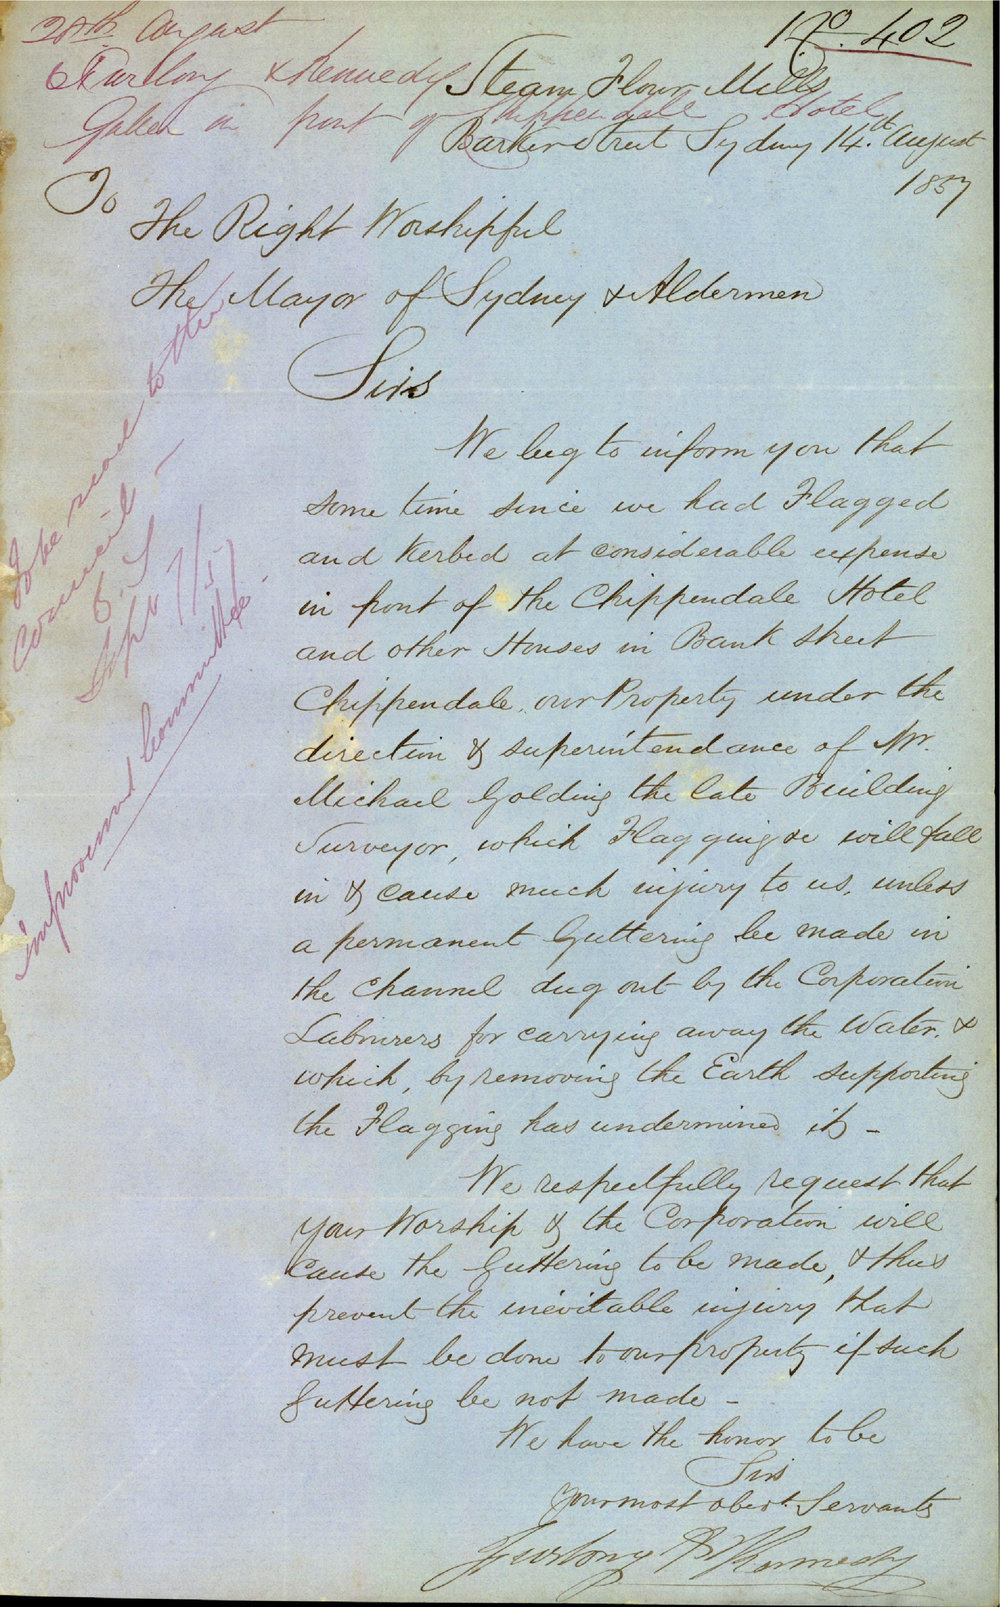 No. 402
20th August
Furlong & Kennedy
Gutter in front of Chippendale Hotel
Steam Flour Mills
Barker Street Sydney 14th. August
1857
To
The Right Worshipful
The Mayor of Sydney & Aldermen
Sirs
We beg to inform you that
some time since we had Flagged
and Kerbed at considerable expense
in front of the Chippendale Hotel
and other Houses in Bank Street
Chippendale, our Property under the
direction & superintendance of Mr.
Michael Golding the late Building
Surveyor, which Flagging &c will fall
in & cause much injury to us, unless
a permanent Guttering be made in
the channel dug out by the Corporation
Labourers for carrying away the Water, &
which, by removing the Earth supporting
the Flagging has undermined it -
We respectfully request that
your Worship & the Corporation will
cause the Guttering to be made, & thus
prevent the inevitable injury that
must be done to our property if such
guttering be not made -
We have the honor to be
Sirs
Your most obedt. Servants
Furlong & Kennedy
To be read to the
Council -
Sepr 7/57
Improvement Committee.